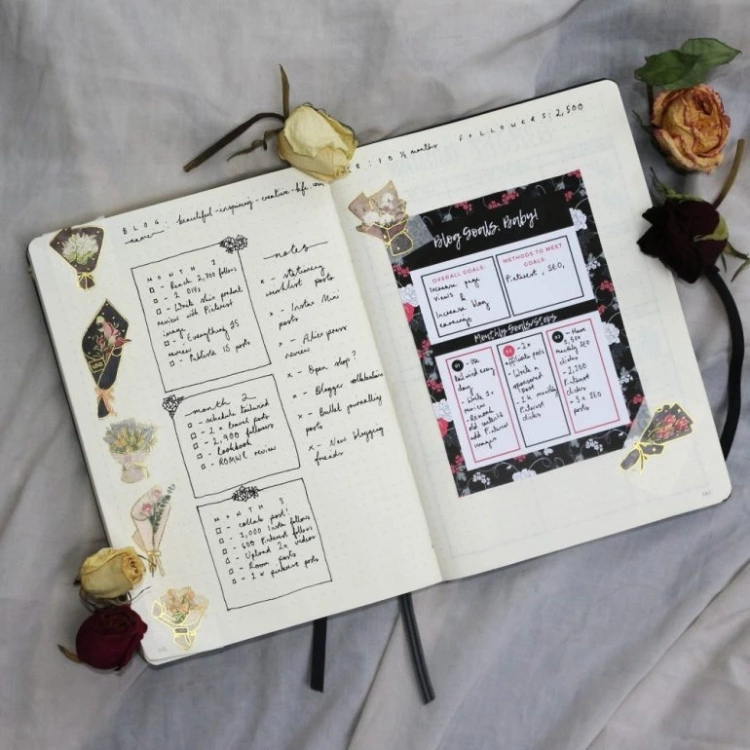 BLOG: beautiful-inspiring-creative-life.com
name
MONTH 1
- Reach 2,700 follows
- 2 DIYs
- Write skin product
review with Pinterest
image
- "Everything £5
review
- Publish 15 posts
month 2
- schedule tailwind
- 2 x travel posts
- 2,900 followers
- lookbook
- ROMWE review
MONTH 3
- collab post!
- 3,000 Insta follows
- 600 Pinterest follows
- Upload 2x videos
- Room posts
- 2 x pinterest posts
notes
x - stationery
wishlist posts
x - Instax Mini
posts
x - Aliexpress
review
x - Open shop?
x - Blogger collaborations
x - Bullet journalling
posts
x - New blogging
friends
: 10 ½ months FOLLOWERS: 2,500
Blog Goals, Baby!
OVERALL GOALS:
Increase page
views
Increase blog
earnings
METHODS TO MEET
GOALS:
Pinterest, SEO,
Monthly Goals/Steps
01 - Use
tailwind every
day
- Write 3x
review
- Rework
old content
add Pinterest
images
02 - 2x
affiliate posts
- Write a
sponsored
post
- 2k monthly
Pinterest
clicks
03 - Have
2,500
monthly SEO
clicks
- 2,200
Pinterest
clicks
- 3 x SEO
posts